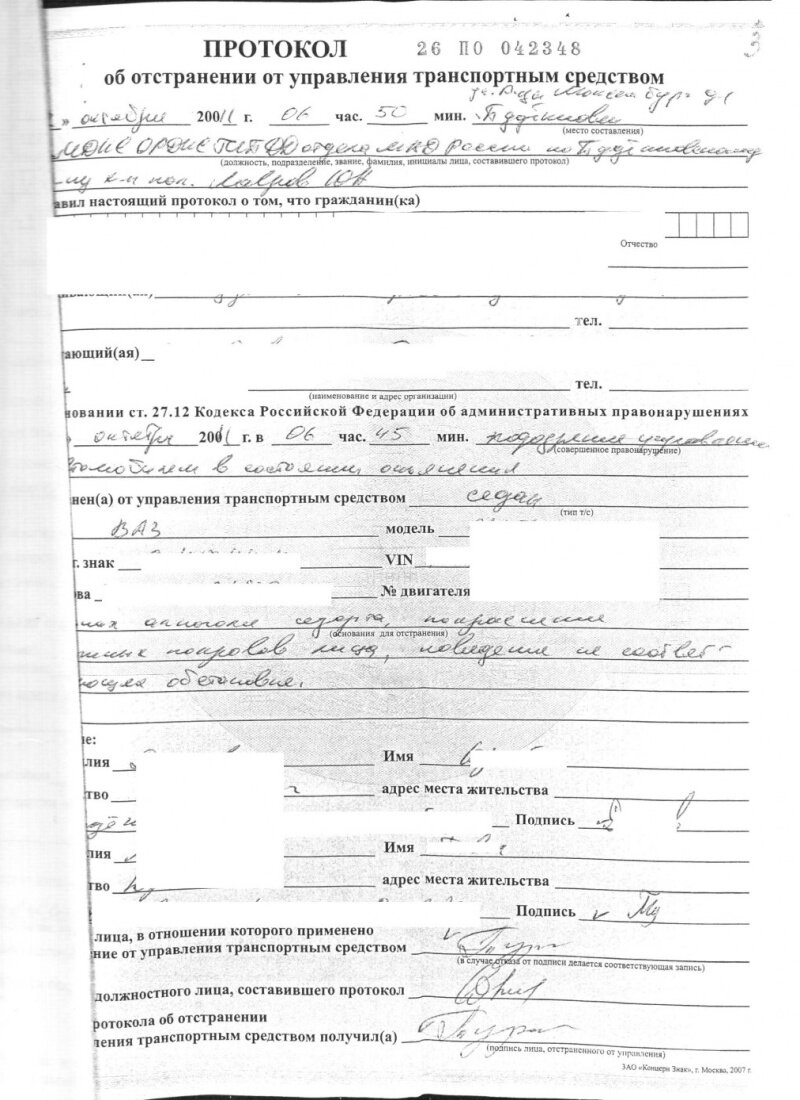 ПРОТОКОЛ 26 ПО 042348
об отстранении от управления транспортным средством
» октября 2001 г. 06 час. 50 мин.
(место составления)
отдела МВД России по
(должность, подразделение, звание, фамилия, инициалы лица, составившего протокол)
Лавров
авил настоящий протокол о том, что гражданин(ка)
Отчество
тел.
ающий(ая)
тел.
(наименование и адрес организации)
новании ст. 27.12 Кодекса Российской Федерации об административных правонарушениях
» октября 2001 г. в 06 час. 45 мин. подозрение управление
(совершенное правонарушение)
томобилем в состоянии опьянения
нен(а) от управления транспортным средством седан
(тип т/с)
ВАЗ модель
г. знак VIN
ва № двигателя
нах алкоголя изо рта, покраснение
(основания для отстранения)
жных покровов лица, поведение не соответ-
ующее обстановке.
е:
лия Имя
тво адрес места жительства
Подпись
лия Имя
тво адрес места жительства
Подпись
лица, в отношении которого применено
ние от управления транспортным средством
(в случае отказа от подписи делается соответствующая запись)
должностного лица, составившего протокол
ротокола об отстранении
ления транспортным средством получил(а)
(подпись лица, отстраненного от управления)
ЗАО «Концерн Знак», г. Москва, 2007 г.